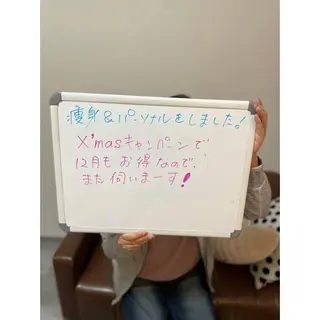 痩身&パーソナルをしました!
X'masキャンペーンで
12月もお得なので、
また伺いまーす!